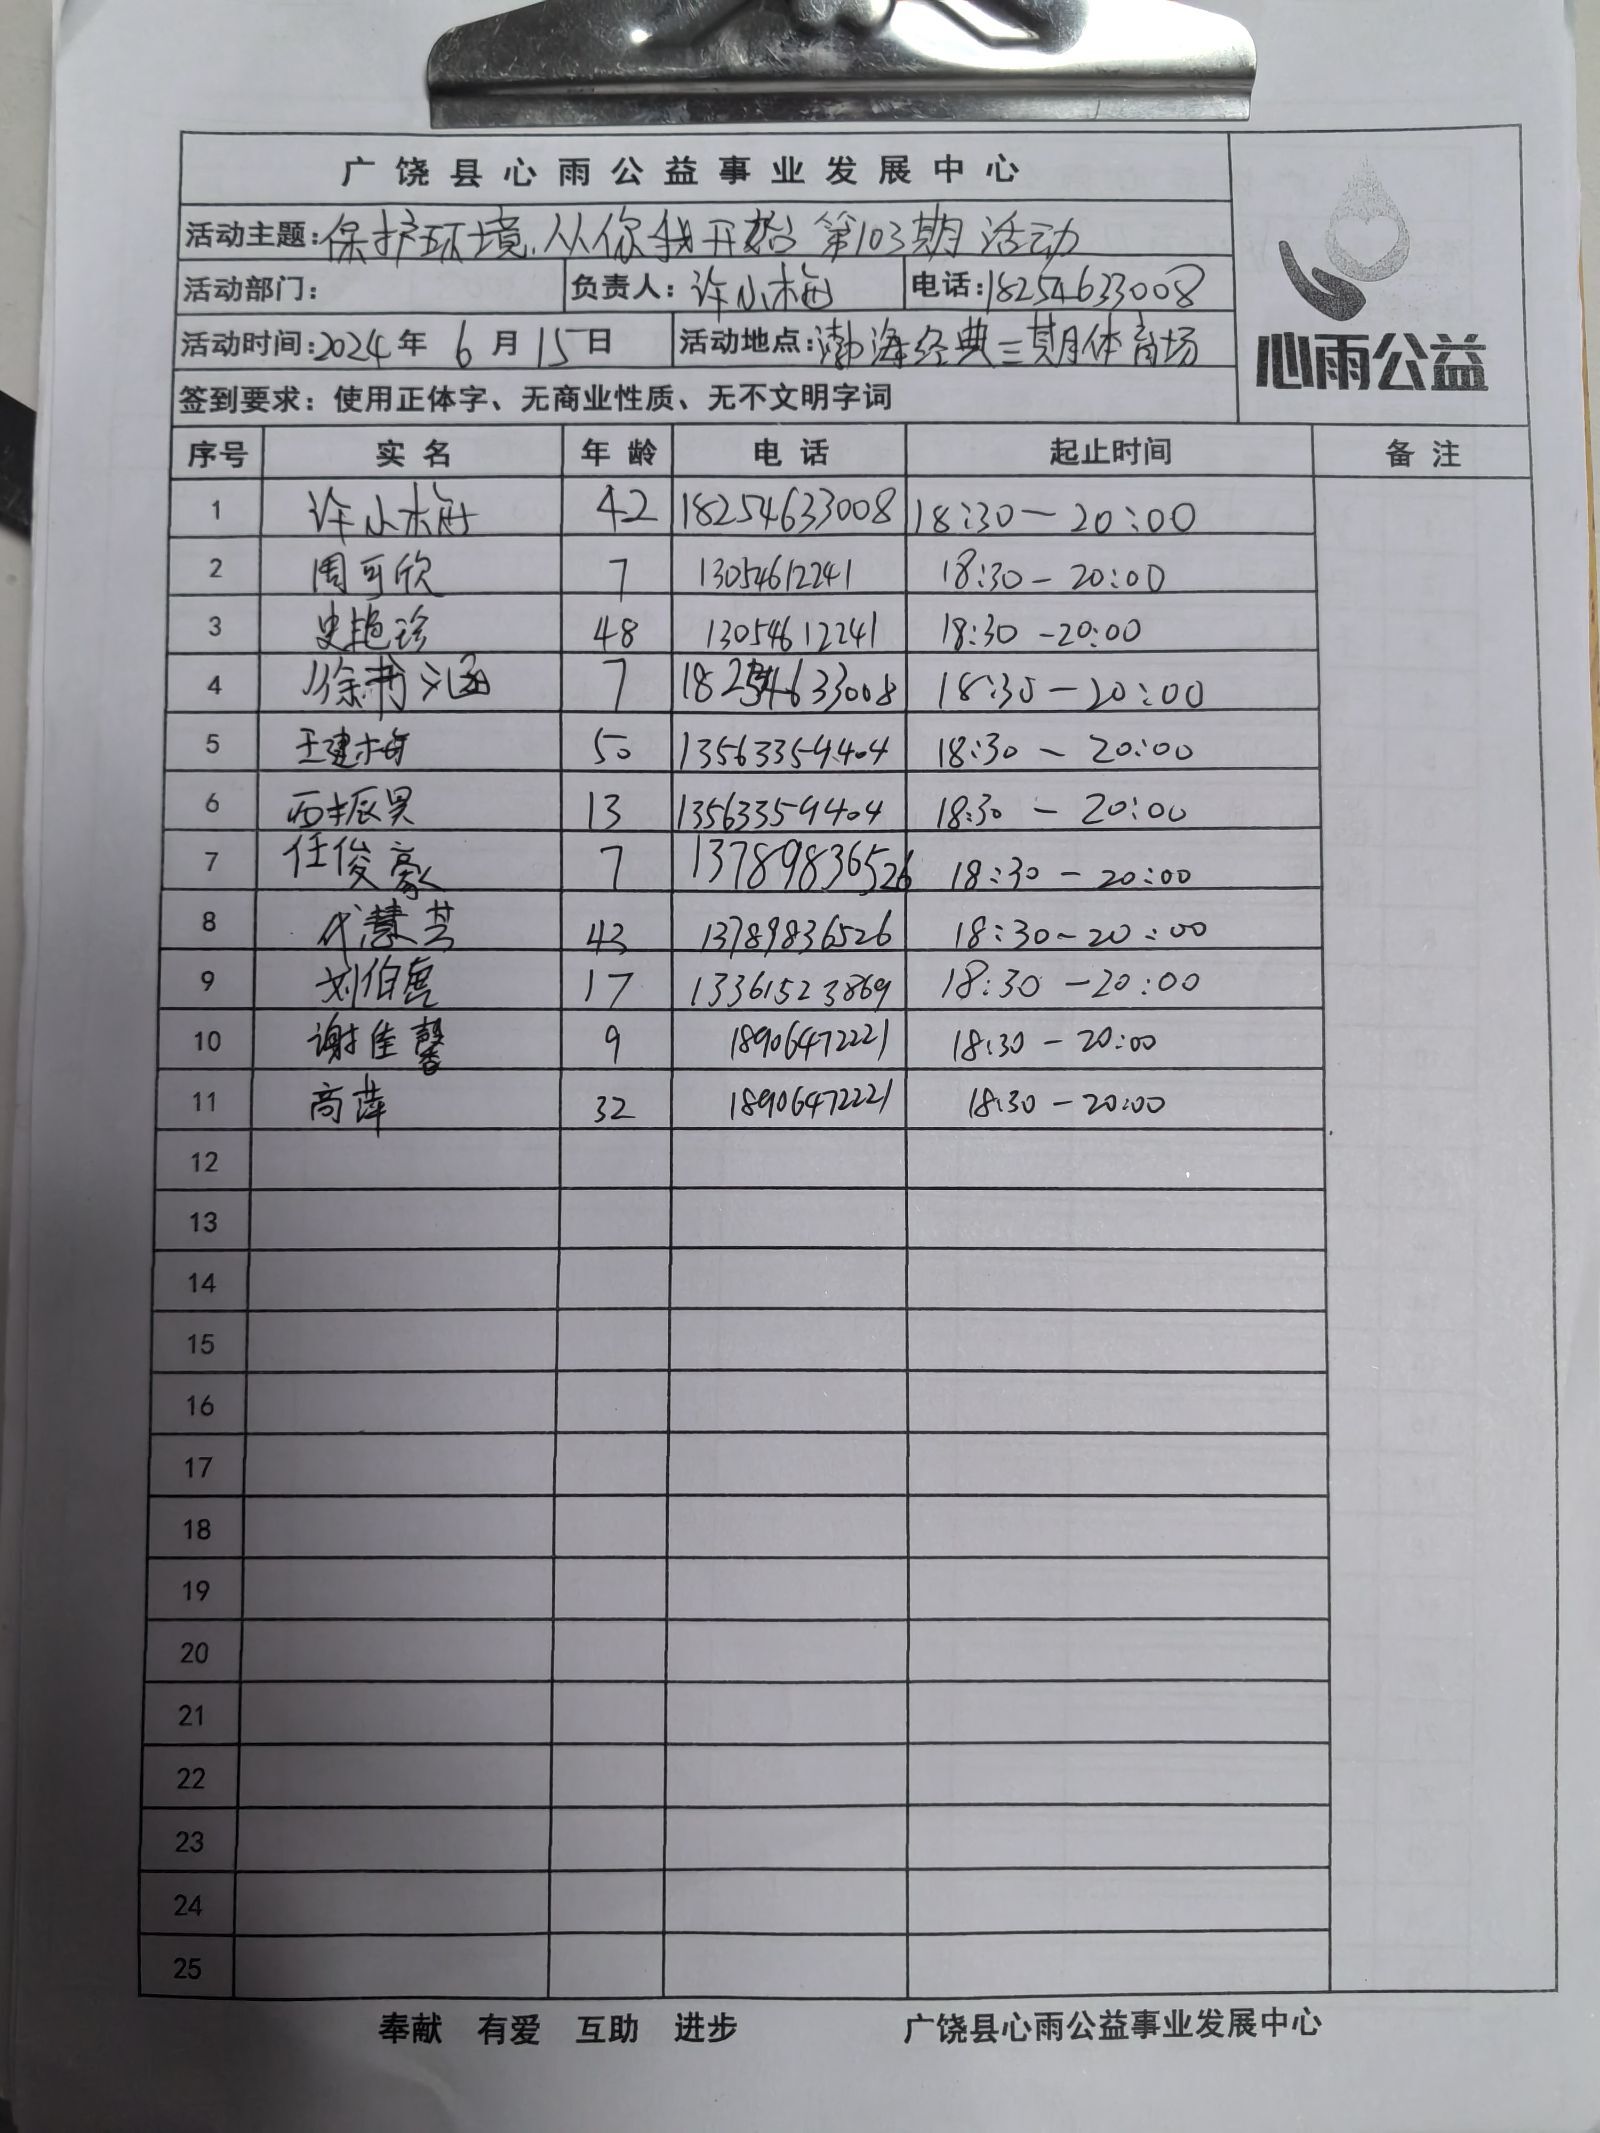 广饶县心雨公益事业发展中心
活动主题:保护环境,从你我开始 第103期 活动
活动部门: 负责人: 许小梅 电话:18254633008
活动时间:2024年 6 月 15 日 活动地点:渤海经典三期体育场
签到要求:使用正体字、无商业性质、无不文明字词
心雨公益
序号 实名 年龄 电话 起止时间 备注
1 许小梅 42 18254633008 18:30—20:00
2 周可欣 7 13054612241 18:30—20:00
3 史艳珍 48 13054612241 18:30-20:00
4 徐涵 7 18254633008 18:30—20:00
5 王建梅 50 13563359404 18:30—20:00
6 西振昊 13 13563359404 18:30—20:00
7 任俊豪 7 13789836526 18:30—20:00
8 代慧芸 43 13789836526 18:30—20:00
9 刘伯 17 13361523869 18:30—20:00
10 谢佳馨 9 18906472221 18:30—20:00
11 高萍 32 18906472221 18:30—20:00
12
13
14
15
16
17
18
19
20
21
22
23
24
25
奉献 有爱 互助 进步 广饶县心雨公益事业发展中心